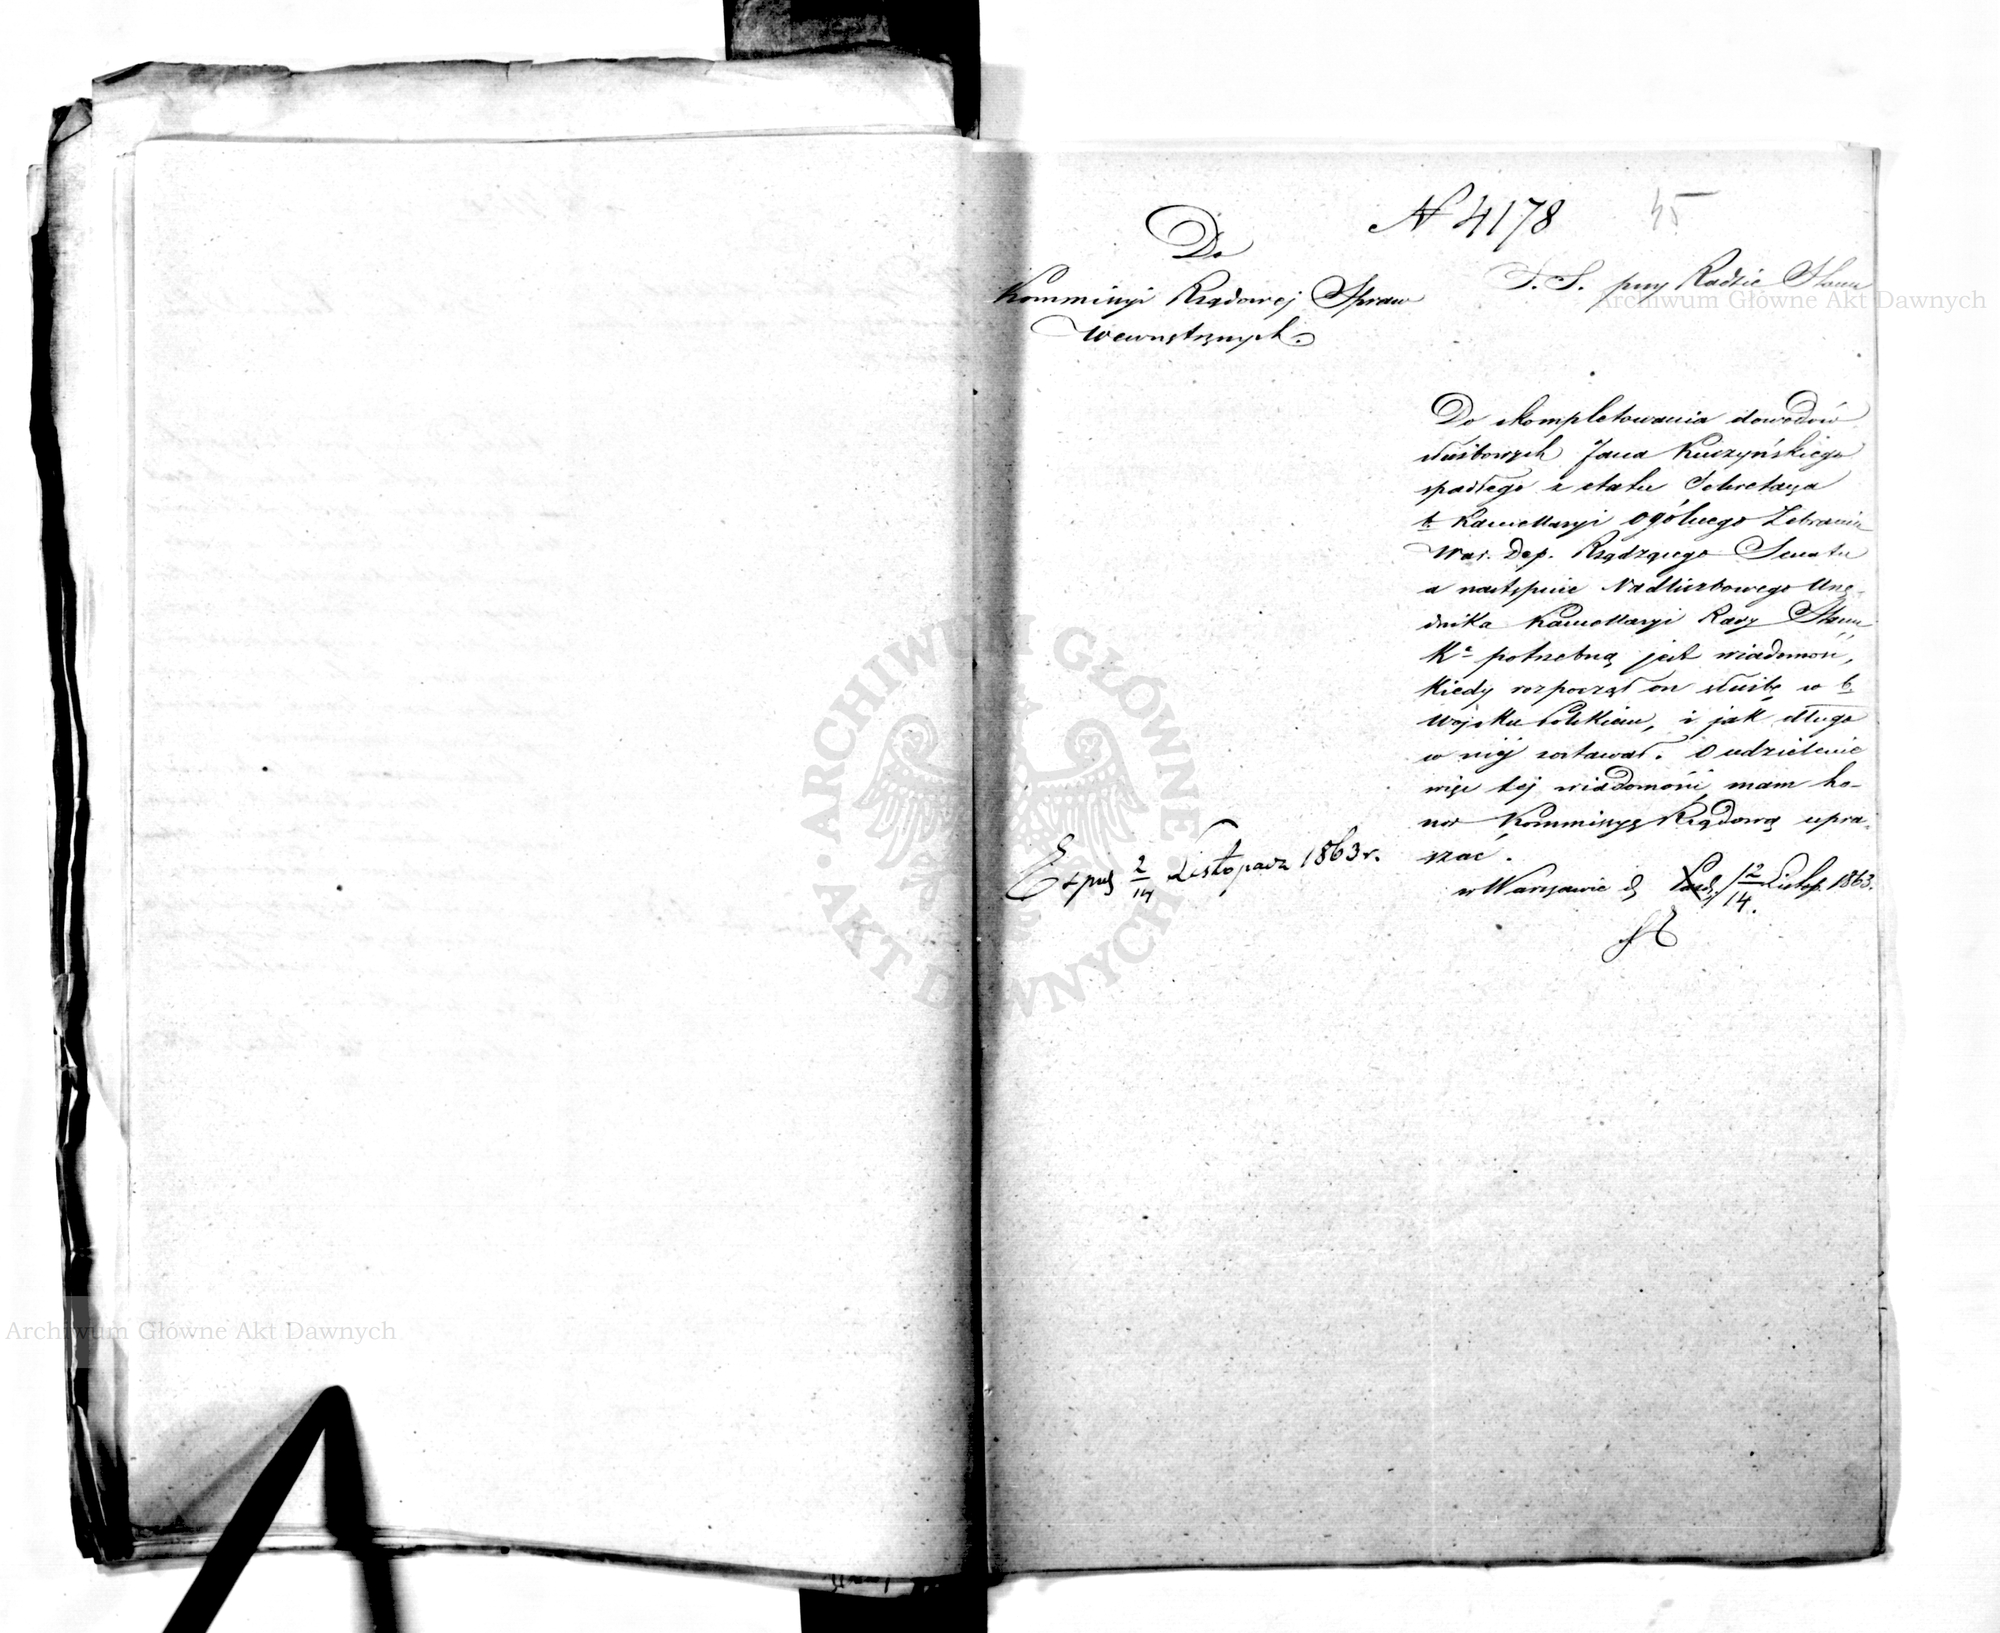 N 4178
45
Do
Kommissyi Rządowej Spraw
Wewnętrznych.
S. S. przy Radzie Stanu
Do skompletowania dowodów
służbowych Jana Kuczyńskiego
spadłego z etatu Sekretarza
b. Kancellaryi Ogólnego Zebrania
War. Dep. Rządzącego Senatu
a następnie Nadliczbowego Urzę-
dnika Kancellaryi Rady Stanu
Kr. potrzebną jest wiadomość,
kiedy rozpoczął on służbę w b.
Wojsku Polskiem, i jak długo
w niéj zostawał. O udzielenie
więc tej wiadomości mam ho-
nor Kommissyę Rządową upra-
szać.
w Warszawie d. 2/14 Listop. 1863.
Exped. 2/14 Listopada 1863 r.
Archiwum Główne Akt Dawnych
ARCHIWUM GŁÓWNE • AKT DAWNYCH •
Archiwum Główne Akt Dawnych